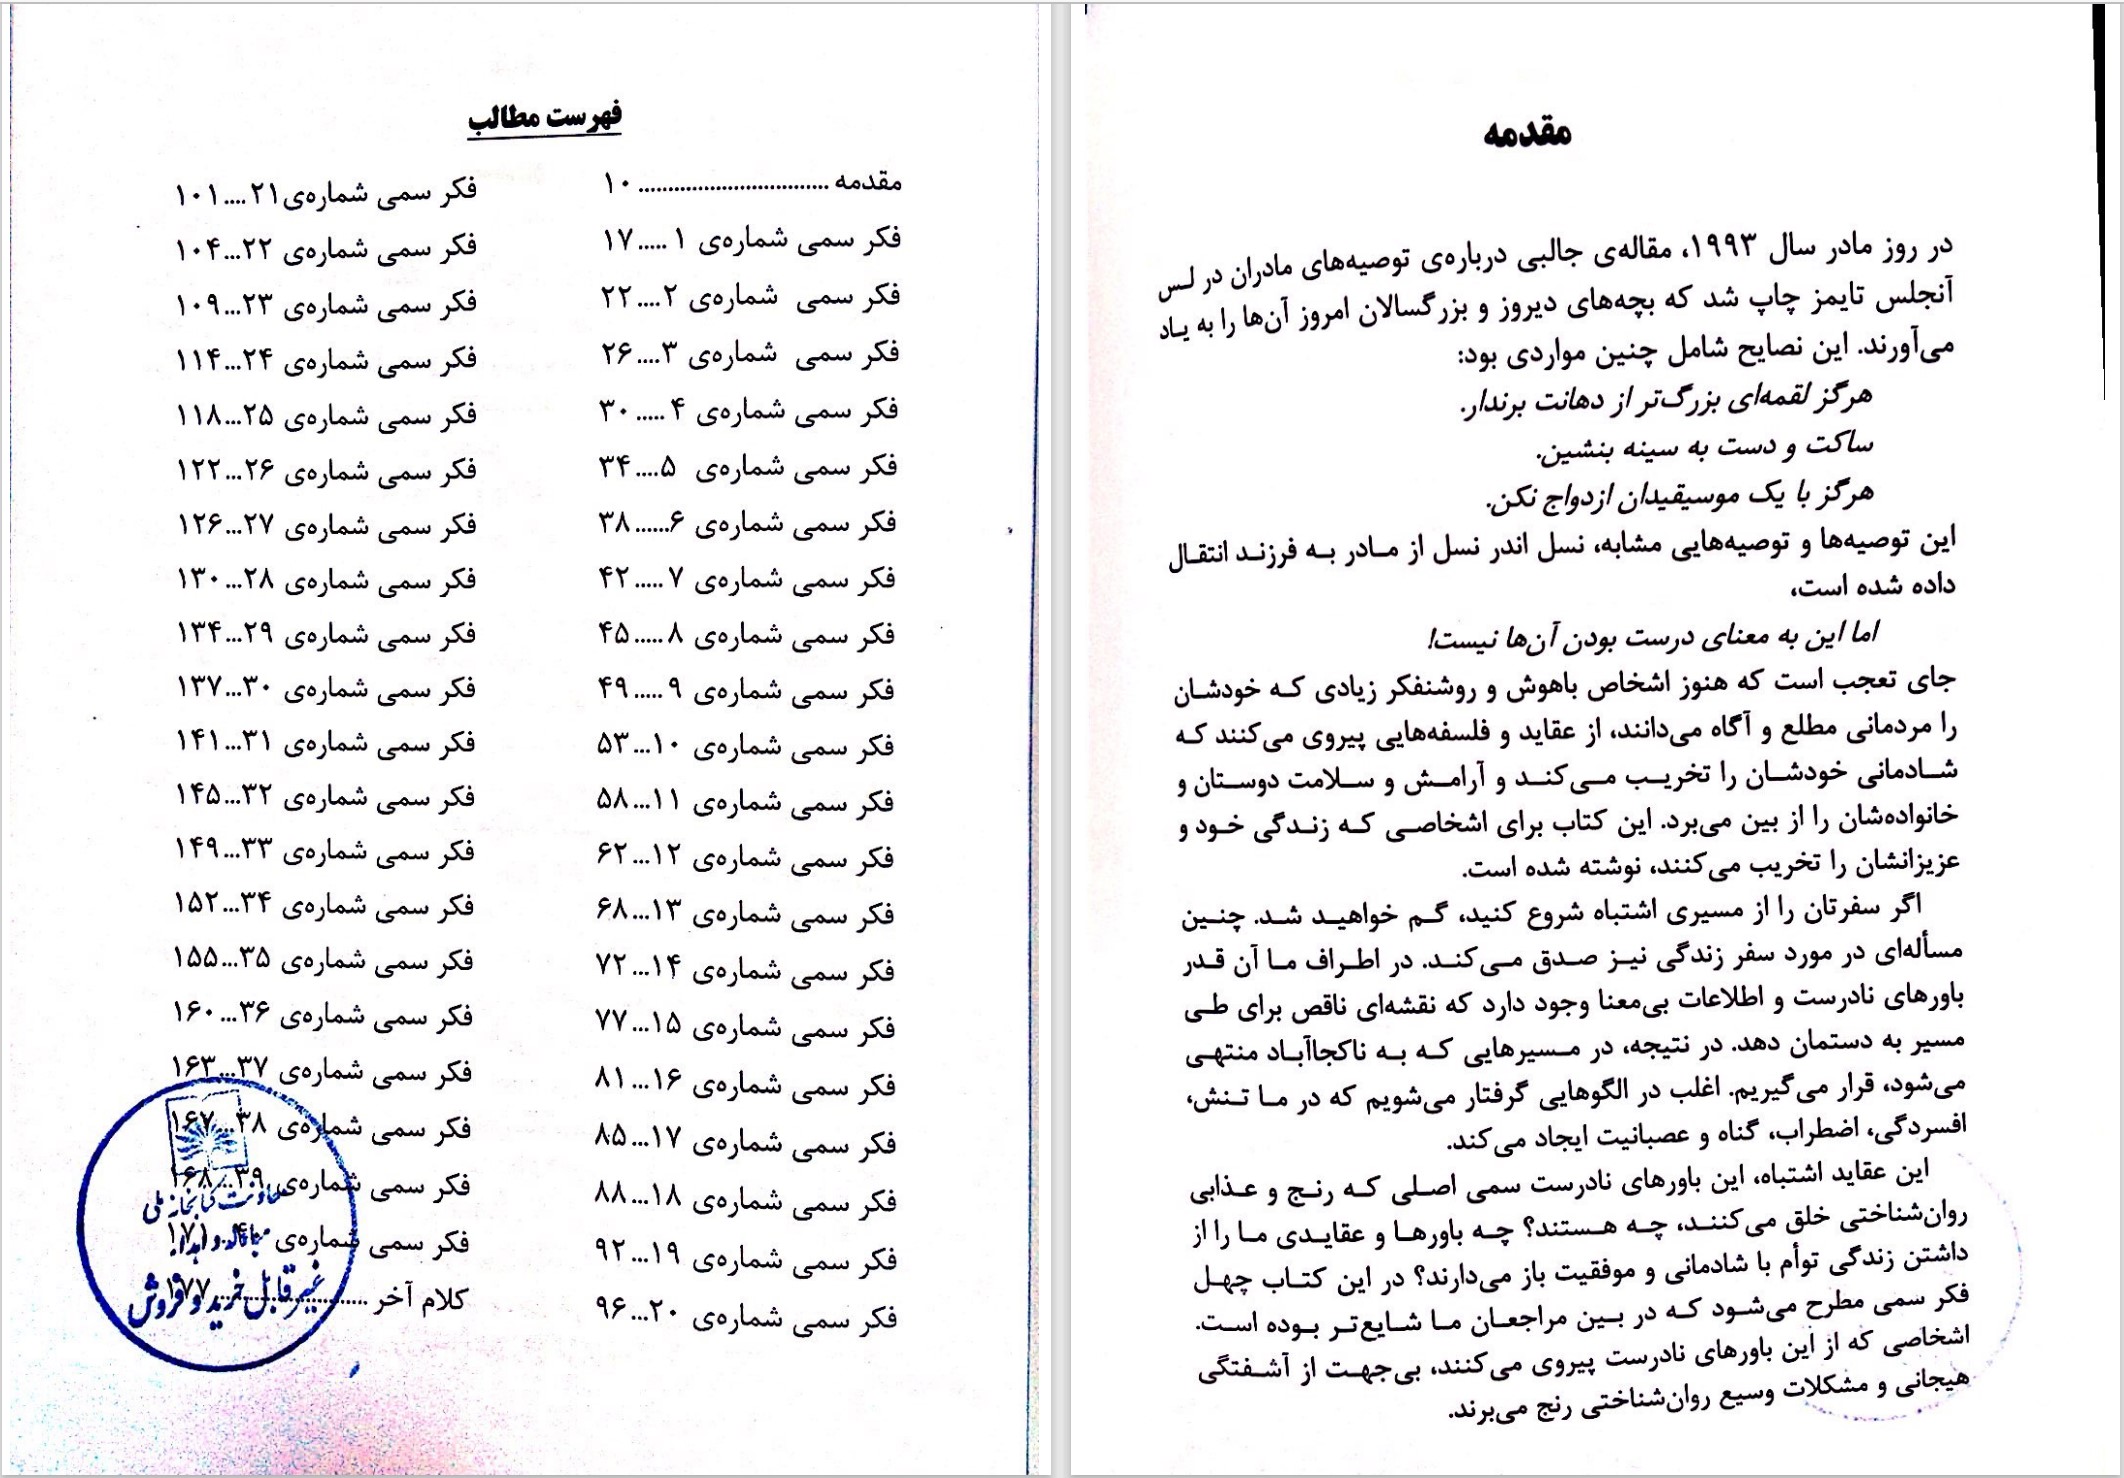 فهرست مطالب
مقدمه ................................ ۱۰
فکر سمی شماره‌ی ۱ .....۱۷
فکر سمی شماره‌ی ۲....۲۲
فکر سمی شماره‌ی ۳....۲۶
فکر سمی شماره‌ی ۴ .....۳۰
فکر سمی شماره‌ی ۵....۳۴
فکر سمی شماره‌ی ۶......۳۸
فکر سمی شماره‌ی ۷ .....۴۲
فکر سمی شماره‌ی ۸ .....۴۵
فکر سمی شماره‌ی ۹ .....۴۹
فکر سمی شماره‌ی ۱۰...۵۳
فکر سمی شماره‌ی ۱۱...۵۸
فکر سمی شماره‌ی ۱۲...۶۲
فکر سمی شماره‌ی ۱۳...۶۸
فکر سمی شماره‌ی ۱۴...۷۲
فکر سمی شماره‌ی ۱۵...۷۷
فکر سمی شماره‌ی ۱۶...۸۱
فکر سمی شماره‌ی ۱۷...۸۵
فکر سمی شماره‌ی ۱۸...۸۸
فکر سمی شماره‌ی ۱۹...۹۲
فکر سمی شماره‌ی ۲۰...۹۶
فکر سمی شماره‌ی۲۱....۱۰۱
فکر سمی شماره‌ی ۲۲...۱۰۴
فکر سمی شماره‌ی ۲۳...۱۰۹
فکر سمی شماره‌ی ۲۴...۱۱۴
فکر سمی شماره‌ی ۲۵...۱۱۸
فکر سمی شماره‌ی ۲۶...۱۲۲
فکر سمی شماره‌ی ۲۷...۱۲۶
فکر سمی شماره‌ی ۲۸...۱۳۰
فکر سمی شماره‌ی ۲۹...۱۳۴
فکر سمی شماره‌ی ۳۰...۱۳۷
فکر سمی شماره‌ی ۳۱...۱۴۱
فکر سمی شماره‌ی ۳۲...۱۴۵
فکر سمی شماره‌ی ۳۳...۱۴۹
فکر سمی شماره‌ی ۳۴...۱۵۲
فکر سمی شماره‌ی ۳۵...۱۵۵
فکر سمی شماره‌ی ۳۶...۱۶۰
فکر سمی شماره‌ی ۳۷...۱۶۳
فکر سمی شماره‌ی ۳۸...۱۶۷
فکر سمی شماره‌ی ۳۹...۱۶۸
فکر سمی شماره‌ی ۴۰...۱۷۱
کلام آخر ..........................۱۷۷
معاونت کتابخانه ملی
مبادله و اهدا
غیر قابل خرید و فروش
مقدمه
در روز مادر سال ۱۹۹۳، مقاله‌ی جالبی درباره‌ی توصیه‌های مادران در لس
آنجلس تایمز چاپ شد که بچه‌های دیروز و بزرگسالان امروز آن‌ها را به یاد
می‌آورند. این نصایح شامل چنین مواردی بود:
هرگز لقمه‌ای بزرگ‌تر از دهانت برندار.
ساکت و دست به سینه بنشین.
هرگز با یک موسیقیدان ازدواج نکن.
این توصیه‌ها و توصیه‌هایی مشابه، نسل اندر نسل از مادر به فرزند انتقال
داده شده است،
اما این به معنای درست بودن آن‌ها نیست!
جای تعجب است که هنوز اشخاص باهوش و روشنفکر زیادی که خودشان
را مردمانی مطلع و آگاه می‌دانند، از عقاید و فلسفه‌هایی پیروی می‌کنند که
شادمانی خودشان را تخریب می‌کند و آرامش و سلامت دوستان و
خانواده‌شان را از بین می‌برد. این کتاب برای اشخاصی که زندگی خود و
عزیزانشان را تخریب می‌کنند، نوشته شده است.
اگر سفرتان را از مسیری اشتباه شروع کنید، گم خواهید شد. چنین
مسأله‌ای در مورد سفر زندگی نیز صدق می‌کند. در اطراف ما آن قدر
باورهای نادرست و اطلاعات بی‌معنا وجود دارد که نقشه‌ای ناقص برای طی
مسیر به دستمان دهد. در نتیجه، در مسیرهایی که به ناکجاآباد منتهی
می‌شود، قرار می‌گیریم. اغلب در الگوهایی گرفتار می‌شویم که در ما تنش،
افسردگی، اضطراب، گناه و عصبانیت ایجاد می‌کند.
این عقاید اشتباه، این باورهای نادرست سمی اصلی که رنج و عذابی
روان‌شناختی خلق می‌کنند، چه هستند؟ چه باورها و عقایدی ما را از
داشتن زندگی توأم با شادمانی و موفقیت باز می‌دارند؟ در این کتاب چهل
فکر سمی مطرح می‌شود که در بین مراجعان ما شایع‌تر بوده است.
اشخاصی که از این باورهای نادرست پیروی می‌کنند، بی‌جهت از آشفتگی
هیجانی و مشکلات وسیع روان‌شناختی رنج می‌برند.